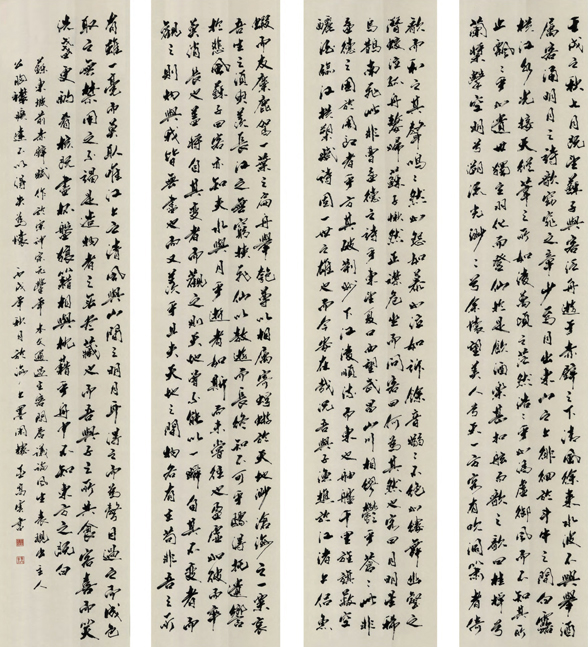 壬戌之秋七月既望蘇子與客泛舟遊於赤壁之下清風徐來水波不興舉酒
屬客誦明月之詩歌窈窕之章少焉月出東山之上徘徊於斗牛之間白露
橫江水光接天縱一葦之所如凌萬頃之茫然浩浩乎如馮虛御風而不知其所
止飄飄乎如遺世獨立羽化而登仙於是飲酒樂甚扣舷而歌之歌曰桂棹兮
蘭槳擊空明兮溯流光渺渺兮余懷望美人兮天一方客有吹洞簫者倚
歌而和之其聲嗚嗚然如怨如慕如泣如訴餘音嫋嫋不絕如縷舞幽壑之
潛蛟泣孤舟嫠婦蘇子愀然正襟危坐而問客曰何為其然也客曰月明星稀
烏鵲南飛此非曹孟德之詩乎東望夏口西望武昌山川相繆鬱乎蒼蒼此非
孟德之困於周郎者乎方其破荊州下江陵順流而東也舳艫千里旌旗蔽空
釃酒臨江橫槊賦詩固一世之雄也而今安在哉況吾與子漁樵於江渚之上侶魚
蝦而友麋鹿駕一葉之扁舟舉匏尊以相屬寄蜉蝣於天地渺滄海之一粟哀
吾生之須臾羨長江之無窮挾飛仙以遨遊而長終知不可乎驟得託遺響
於悲風蘇子曰客亦知夫水與月乎逝者如斯而未嘗往也盈虛如彼而卒
莫消長也蓋將自其變者而觀之則天地曾不能以一瞬自其不變者而
觀之則物與我皆無盡也而又羨乎且夫天地之間物各有主苟非吾之所
有雖一毫而莫取惟江上之清風與山間之明月耳得之而為聲目遇之而成色
取之無禁用之不竭是造物者之無盡藏也而吾與子之所共食客喜而笑
洗盞更酌肴核既盡杯盤狼籍相與枕藉乎舟中不知東方之既白
蘇東坡前赤壁賦作於宋神宗元豐年本文通過主客問答議論風生表現出主人
公 丙戌年秋月於滬上墨閒樓